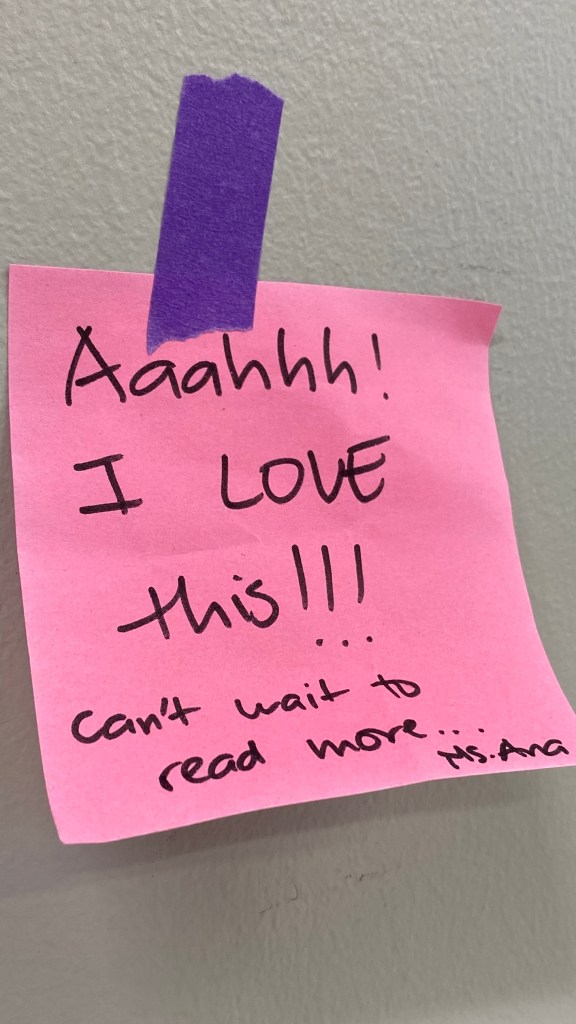 Aaahhh!
I LOVE
this!!!
can't wait to
read more...
Ms. Ana